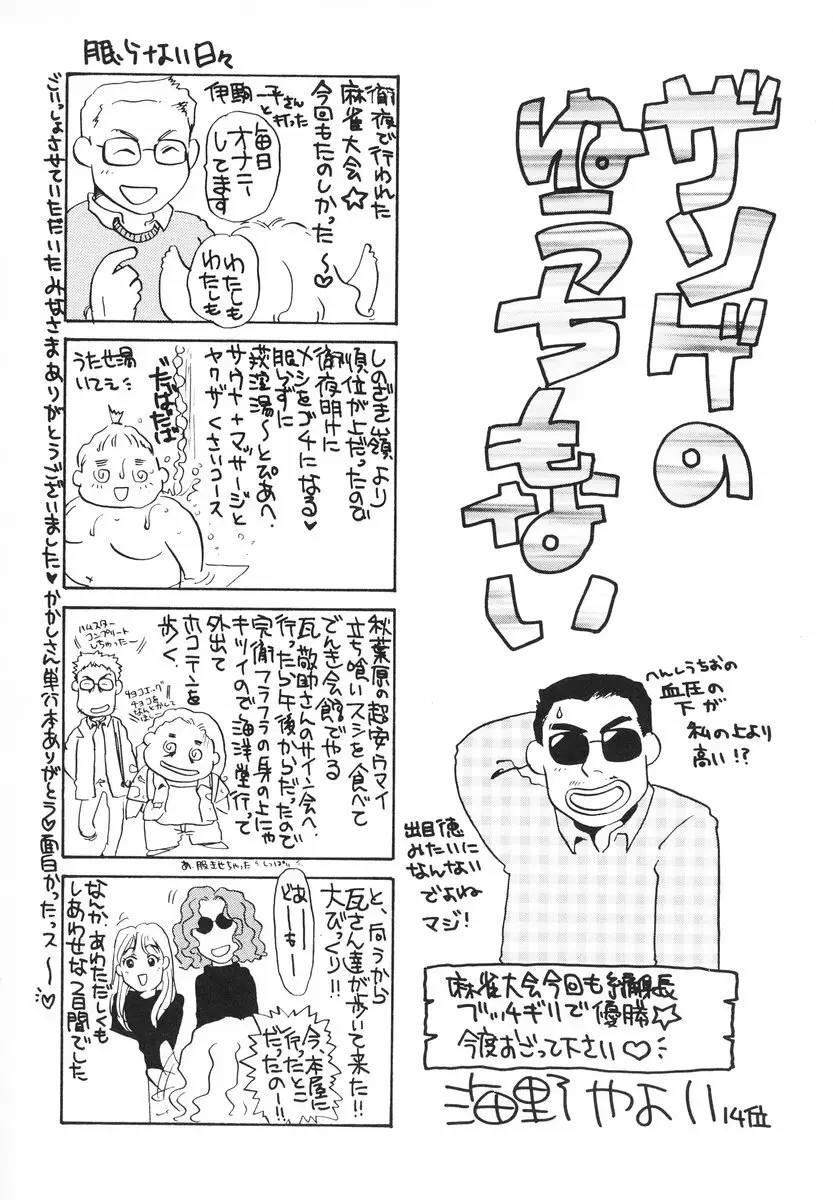 ザンゲの
ゆうちもない
へんしうちおの
血圧の
下が
私の上より
高い!?
出目徳
みたいに
なんない
でよね
マジ!
麻雀大会今回も編集長
ブッチギリで優勝☆
今度おごって下さい♡
海野やよい
14位
眠らない日々
徹夜で行われた
麻雀大会☆
今回もたのしかった〜♡
伊駒一平さん
と打った
毎日
オナニー
してます
わたしも
わたしも
しのざき嶺より
順位が上だったので
徹夜明けに
メシをゴチになる♥
眠らずに
荻窪湯〜とぴあへ
サウナ+マッサージと
ヤクザくさいコース
だばだば
うたせ湯
いてえ
秋葉原の超安ウマイ
立ち喰いスシを食べて
でんき会館でやる
瓦敬助さんのサイン会へ
行ったら午後からだったので
完徹フラフラの身の上にゃ
キツイので海洋堂行って
外出て
ホコテンを
歩く
ハムスター
コンプリート
しちゃったー
チョコエッグ
チョコを
なんとかして
あ、服きせちゃった
しっぱい
と、向うから
瓦さん達が歩いて来た!!
大びっくり!!
どおーもー
今、本屋に
行ったとこ
だったのー!!
なんか、あわただしくも
しあわせな2日間でした
ごいっしょさせていただいたみなさまありがとうございました♥かかしさん単行本ありがとう♡面白かったっス〜♡